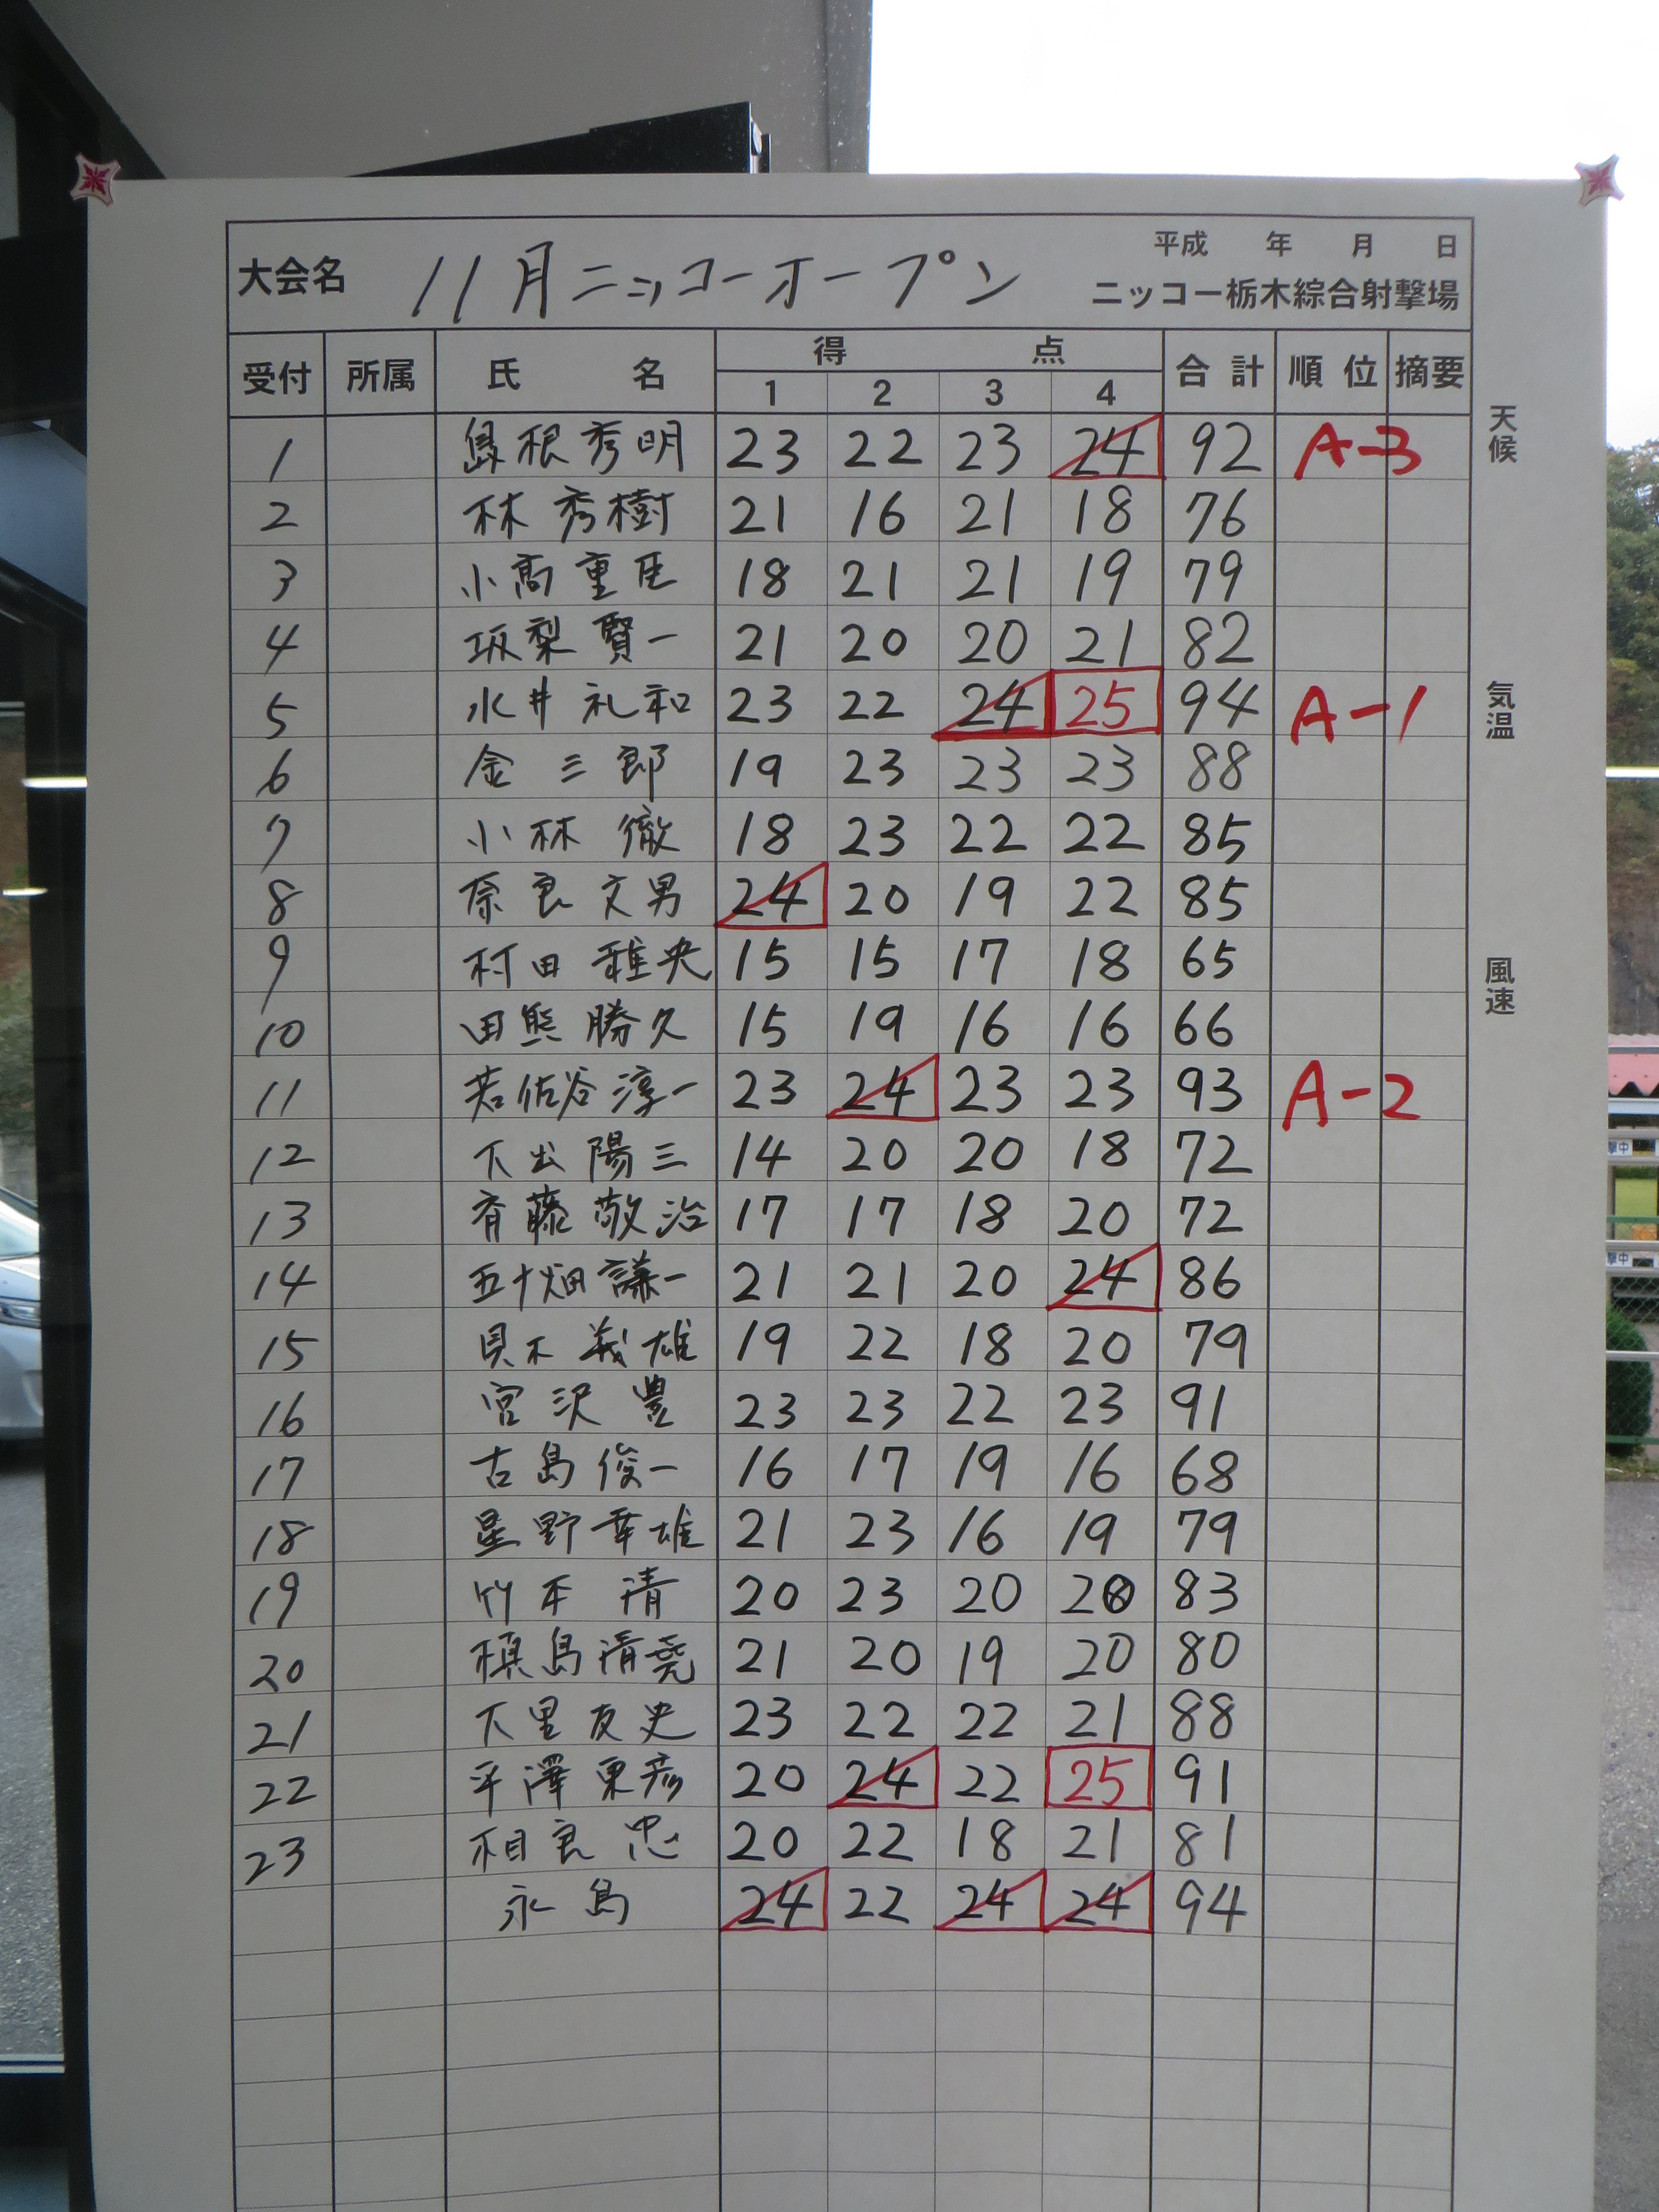 平成 年 月 日
大会名 11月ニッコーオープン ニッコー栃木綜合射撃場
受付 所属 氏名 得点 合計 順位 摘要
1 2 3 4
天候
気温
風速
1 島根秀明 23 22 23 24 92 A-3
2 林秀樹 21 16 21 18 76
3 小高重臣 18 21 21 19 79
4 坂梨賢一 21 20 20 21 82
5 永井礼和 23 22 24 25 94 A-1
6 金三郎 19 23 23 23 88
7 小林徹 18 23 22 22 85
8 奈良文男 24 20 19 22 85
9 村田雅央 15 15 17 18 65
10 田熊勝久 15 19 16 16 66
11 若佐谷淳一 23 24 23 23 93 A-2
12 下出陽三 14 20 20 18 72
13 斉藤敬治 17 17 18 20 72
14 五十畑謙一 21 21 20 24 86
15 貝木義雄 19 22 18 20 79
16 宮沢豊 23 23 22 23 91
17 古島俊一 16 17 19 16 68
18 星野幸雄 21 23 16 19 79
19 竹本清 20 23 20 20 83
20 槙島清堯 21 20 19 20 80
21 下里友史 23 22 22 21 88
22 平澤東彦 20 24 22 25 91
23 相良忠 20 22 18 21 81
永島 24 22 24 24 94